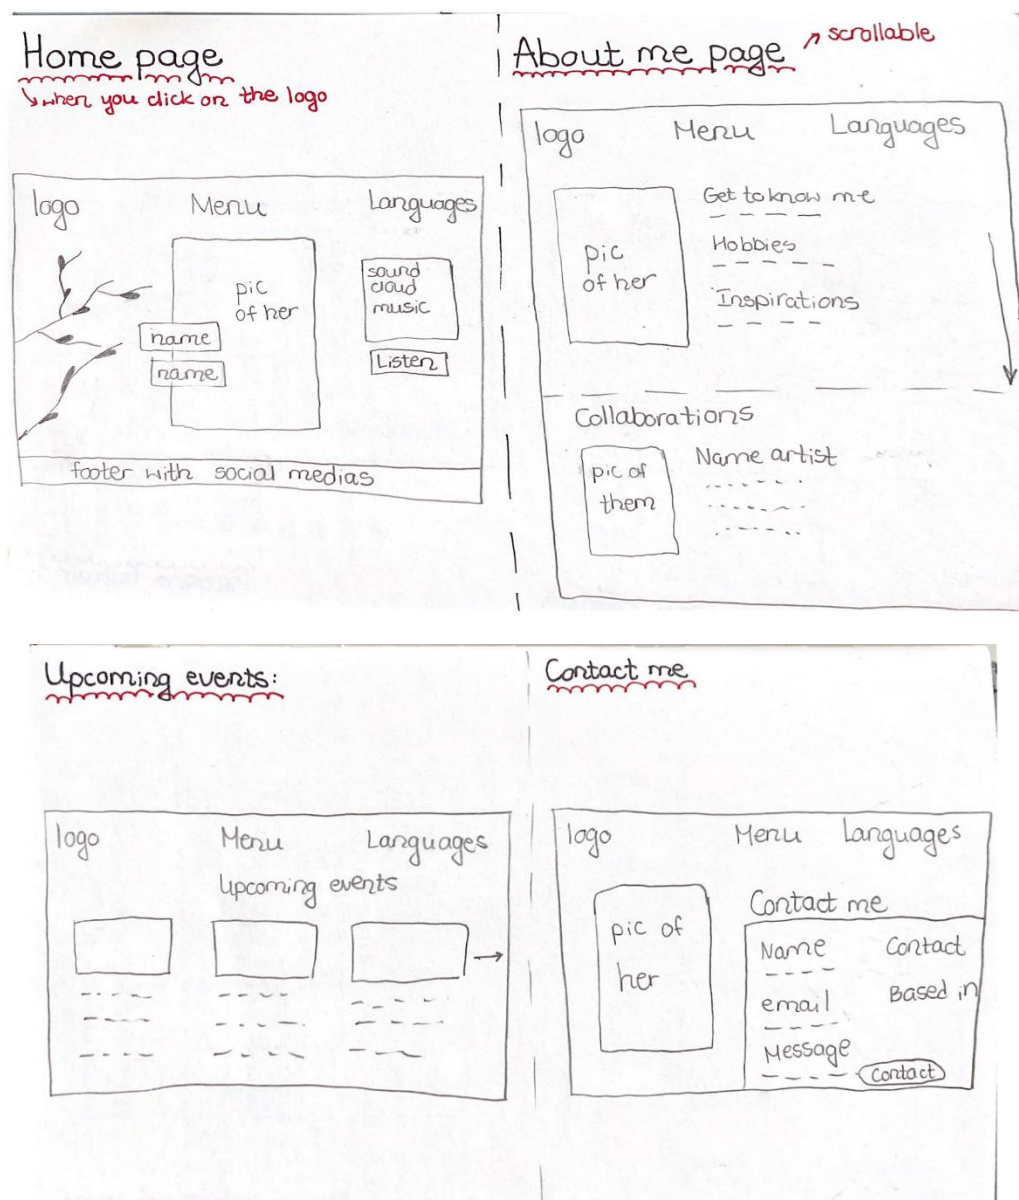 Home page
when you click on the logo
logo Menu Languages
pic
of her
sound
cloud
music
name
name
Listen
footer with social medias
About me page
scrollable
logo Menu Languages
pic
of her
Get to know me
Hobbies
Inspirations
Collaborations
pic of
them
Name artist
Upcoming events:
logo Menu Languages
Upcoming events
Contact me
logo Menu Languages
pic of
her
Contact me
Name Contact
email Based in
Message
Contact